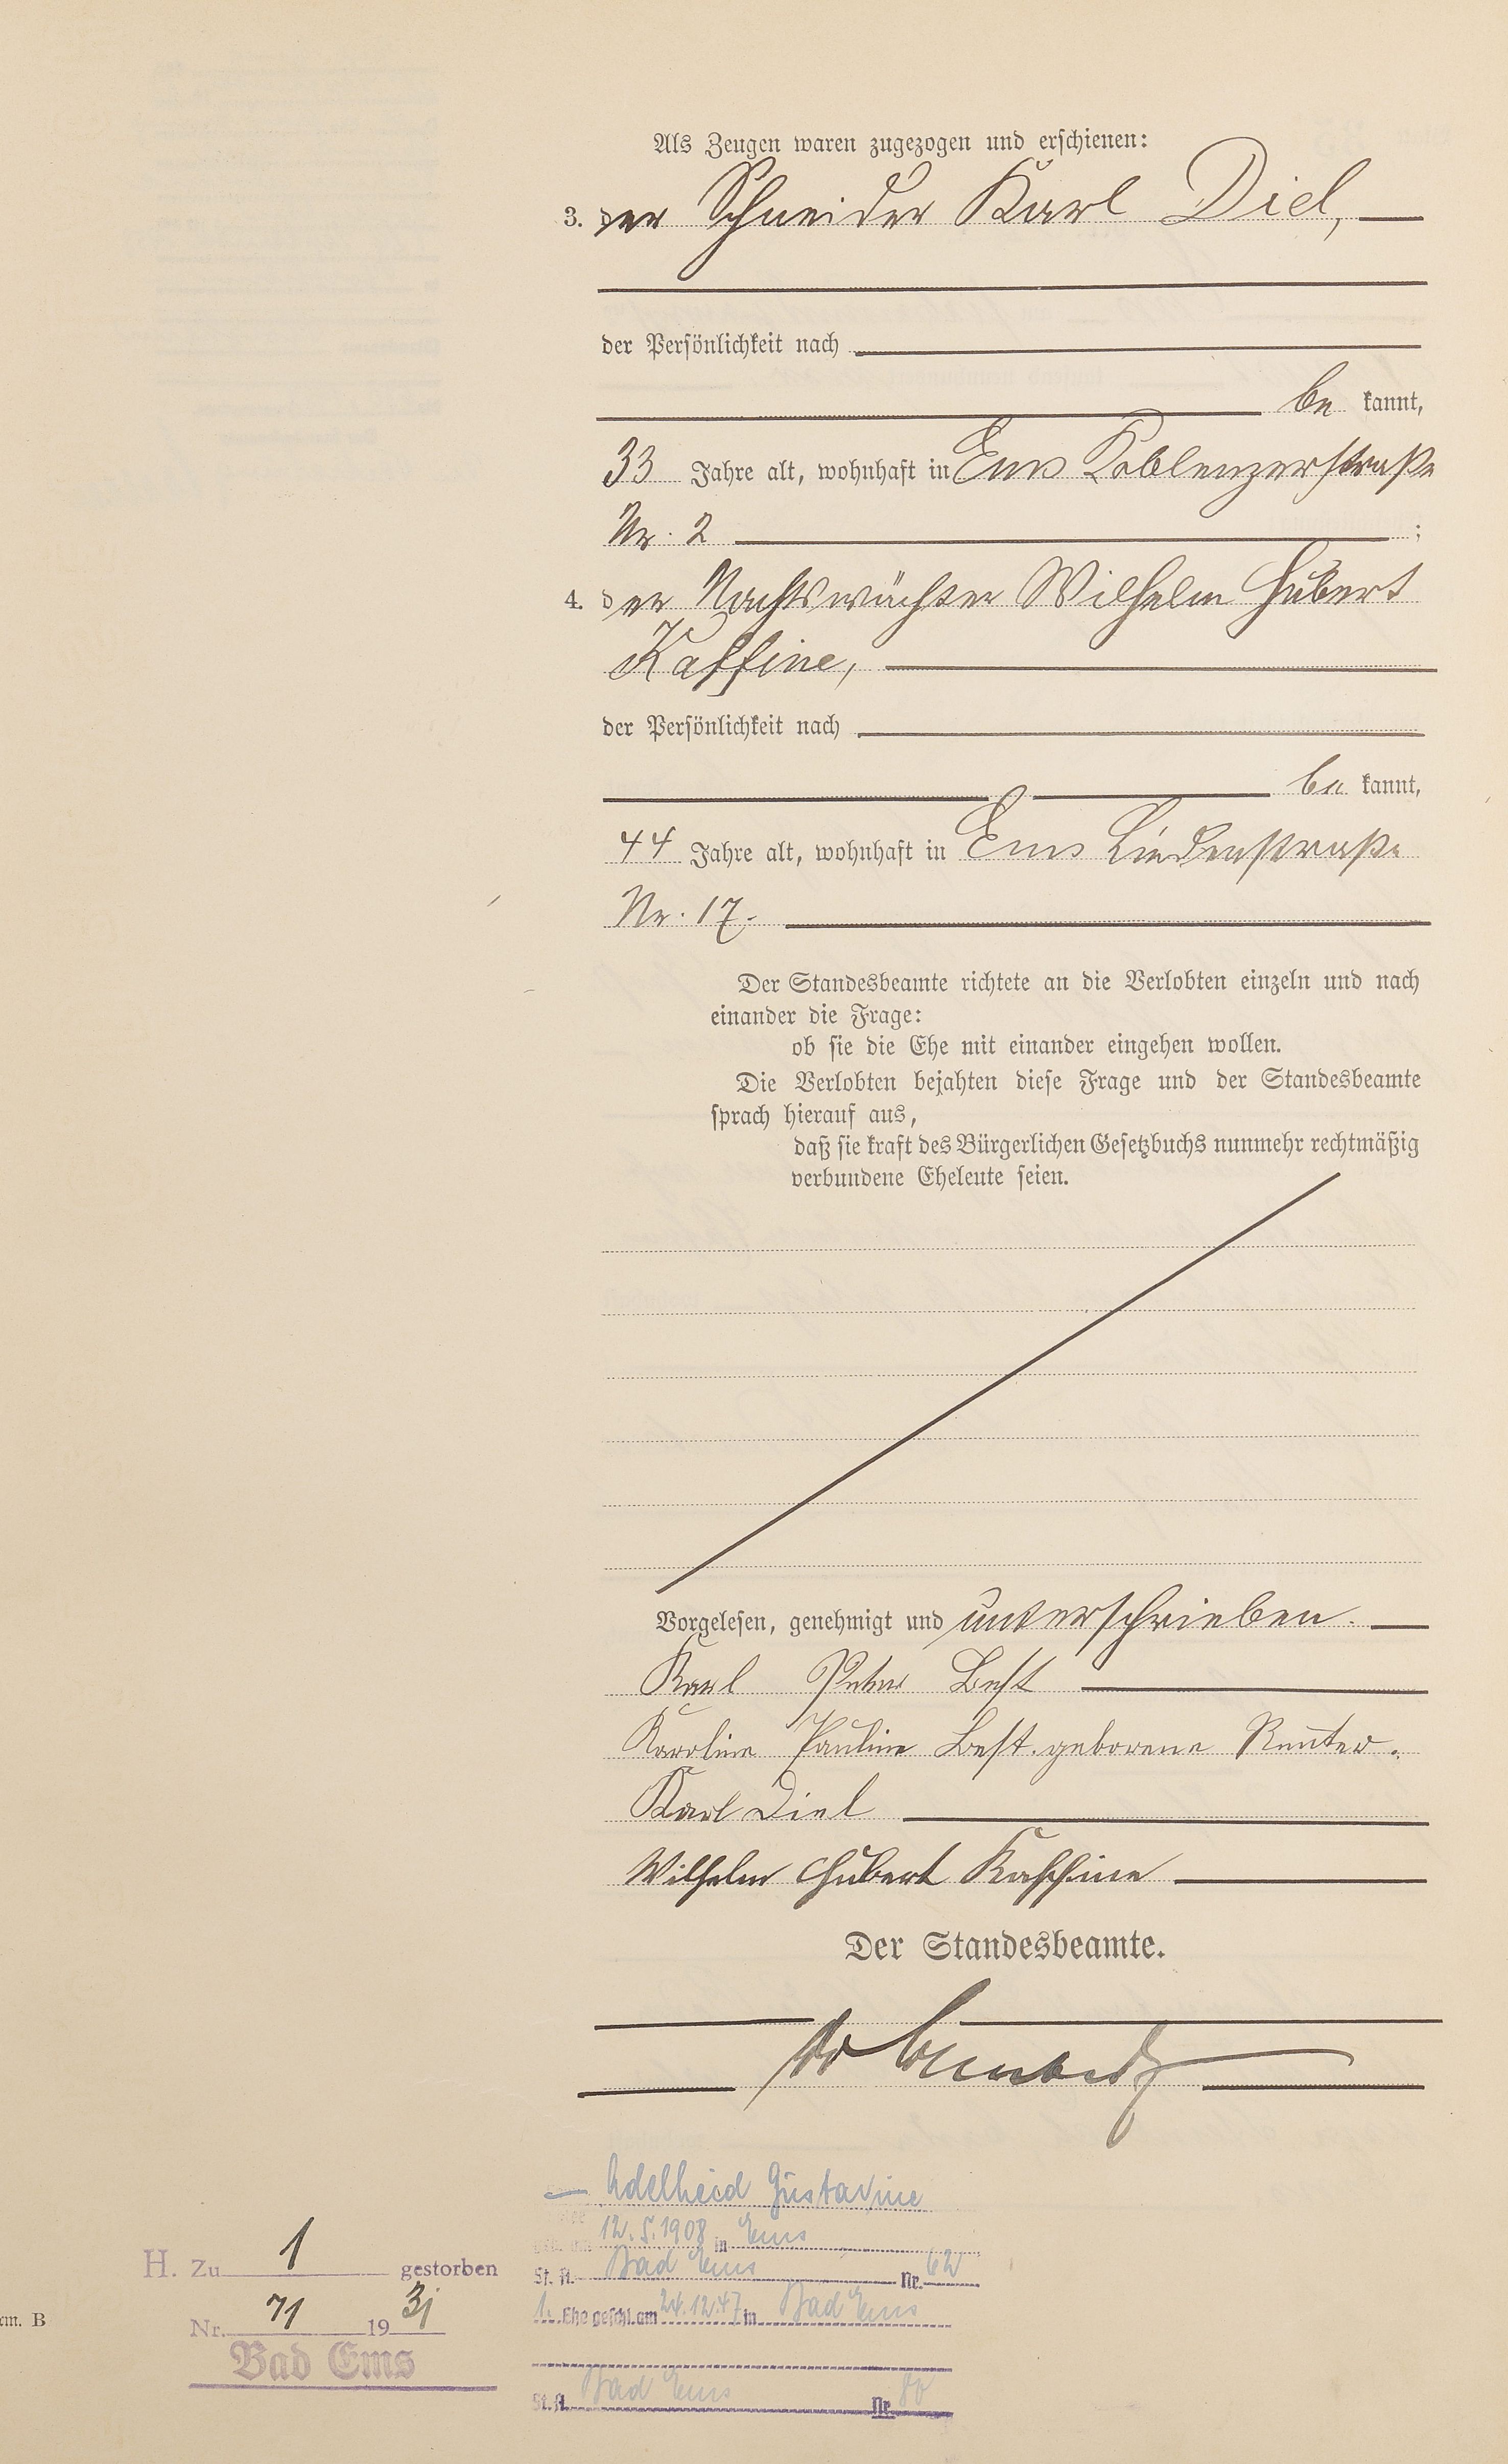 Als Zeugen waren zugezogen und erschienen:
3. der Schneider Karl Diel,
der Persönlichkeit nach
be kannt,
33 Jahre alt, wohnhaft in Ems Koblenzerstraße
Nr. 2 ;
4. der Nachtswächter Wilhelm Hubert
Kaffine,
der Persönlichkeit nach
be kannt,
44 Jahre alt, wohnhaft in Ems Lindenstraße
Nr. 17.
Der Standesbeamte richtete an die Verlobten einzeln und nach
einander die Frage:
ob sie die Ehe mit einander eingehen wollen.
Die Verlobten bejahten diese Frage und der Standesbeamte
sprach hierauf aus,
daß sie kraft des Bürgerlichen Gesetzbuchs nunmehr rechtmäßig
verbundene Eheleute seien.
Vorgelesen, genehmigt und unterschrieben.
Karl Peter Best
Karoline Pauline Best geborene Reuter.
Karl Diel
Wilhelm Hubert Kaffine
Der Standesbeamte.
Adelheid Gustavine
12.5.1908 in Ems
St. A. Bad Ems Nr. 62
1. Ehe geschl. am 24.12.47 in Bad Ems
St. A. Bad Ems Nr. 80
H. Zu 1 gestorben
Nr. 71 1931
Bad Ems
rm. B